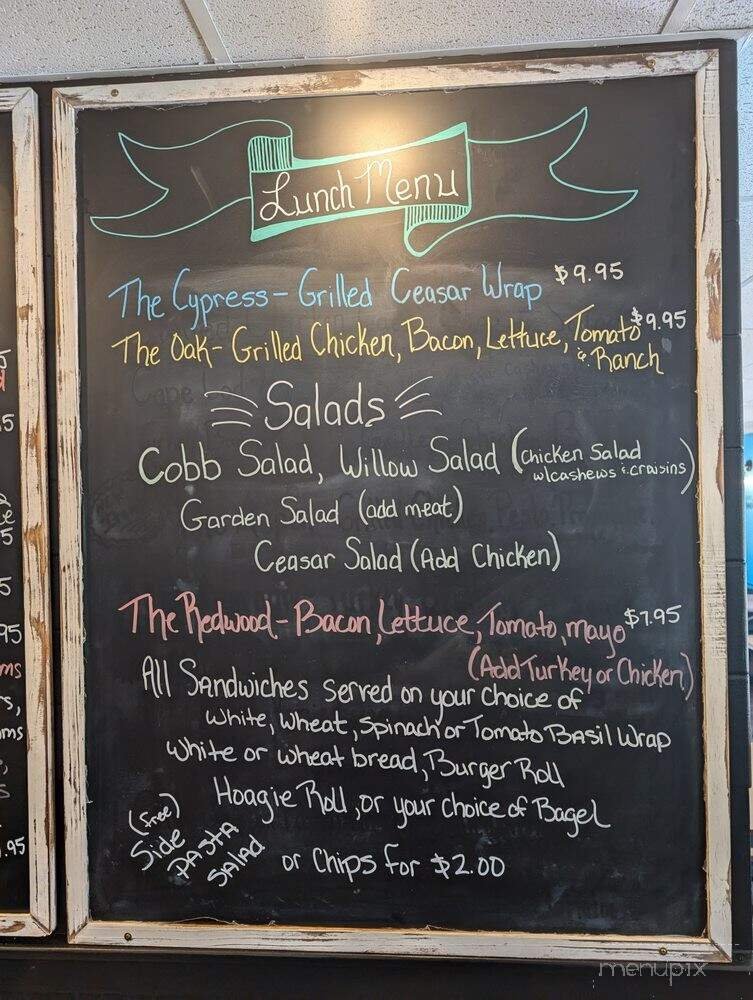 Lunch Menu
The Cypress - Grilled Ceasar Wrap $9.95
The Oak - Grilled Chicken, Bacon, Lettuce, Tomato $9.95
& Ranch
Salads
Cobb Salad, Willow Salad (Chicken Salad
w/cashews & craisins)
Garden Salad (add meat)
Ceasar Salad (Add Chicken)
The Redwood - Bacon, Lettuce, Tomato, mayo $7.95
(Add Turkey or Chicken)
All Sandwiches served on your choice of
white, wheat, spinach or Tomato Basil Wrap
white or wheat bread, Burger Roll
Hoagie Roll, or your choice of Bagel
(free)
Side
Pasta
Salad
or Chips for $2.00
5
95
ms
s,
ms
.95
menupix